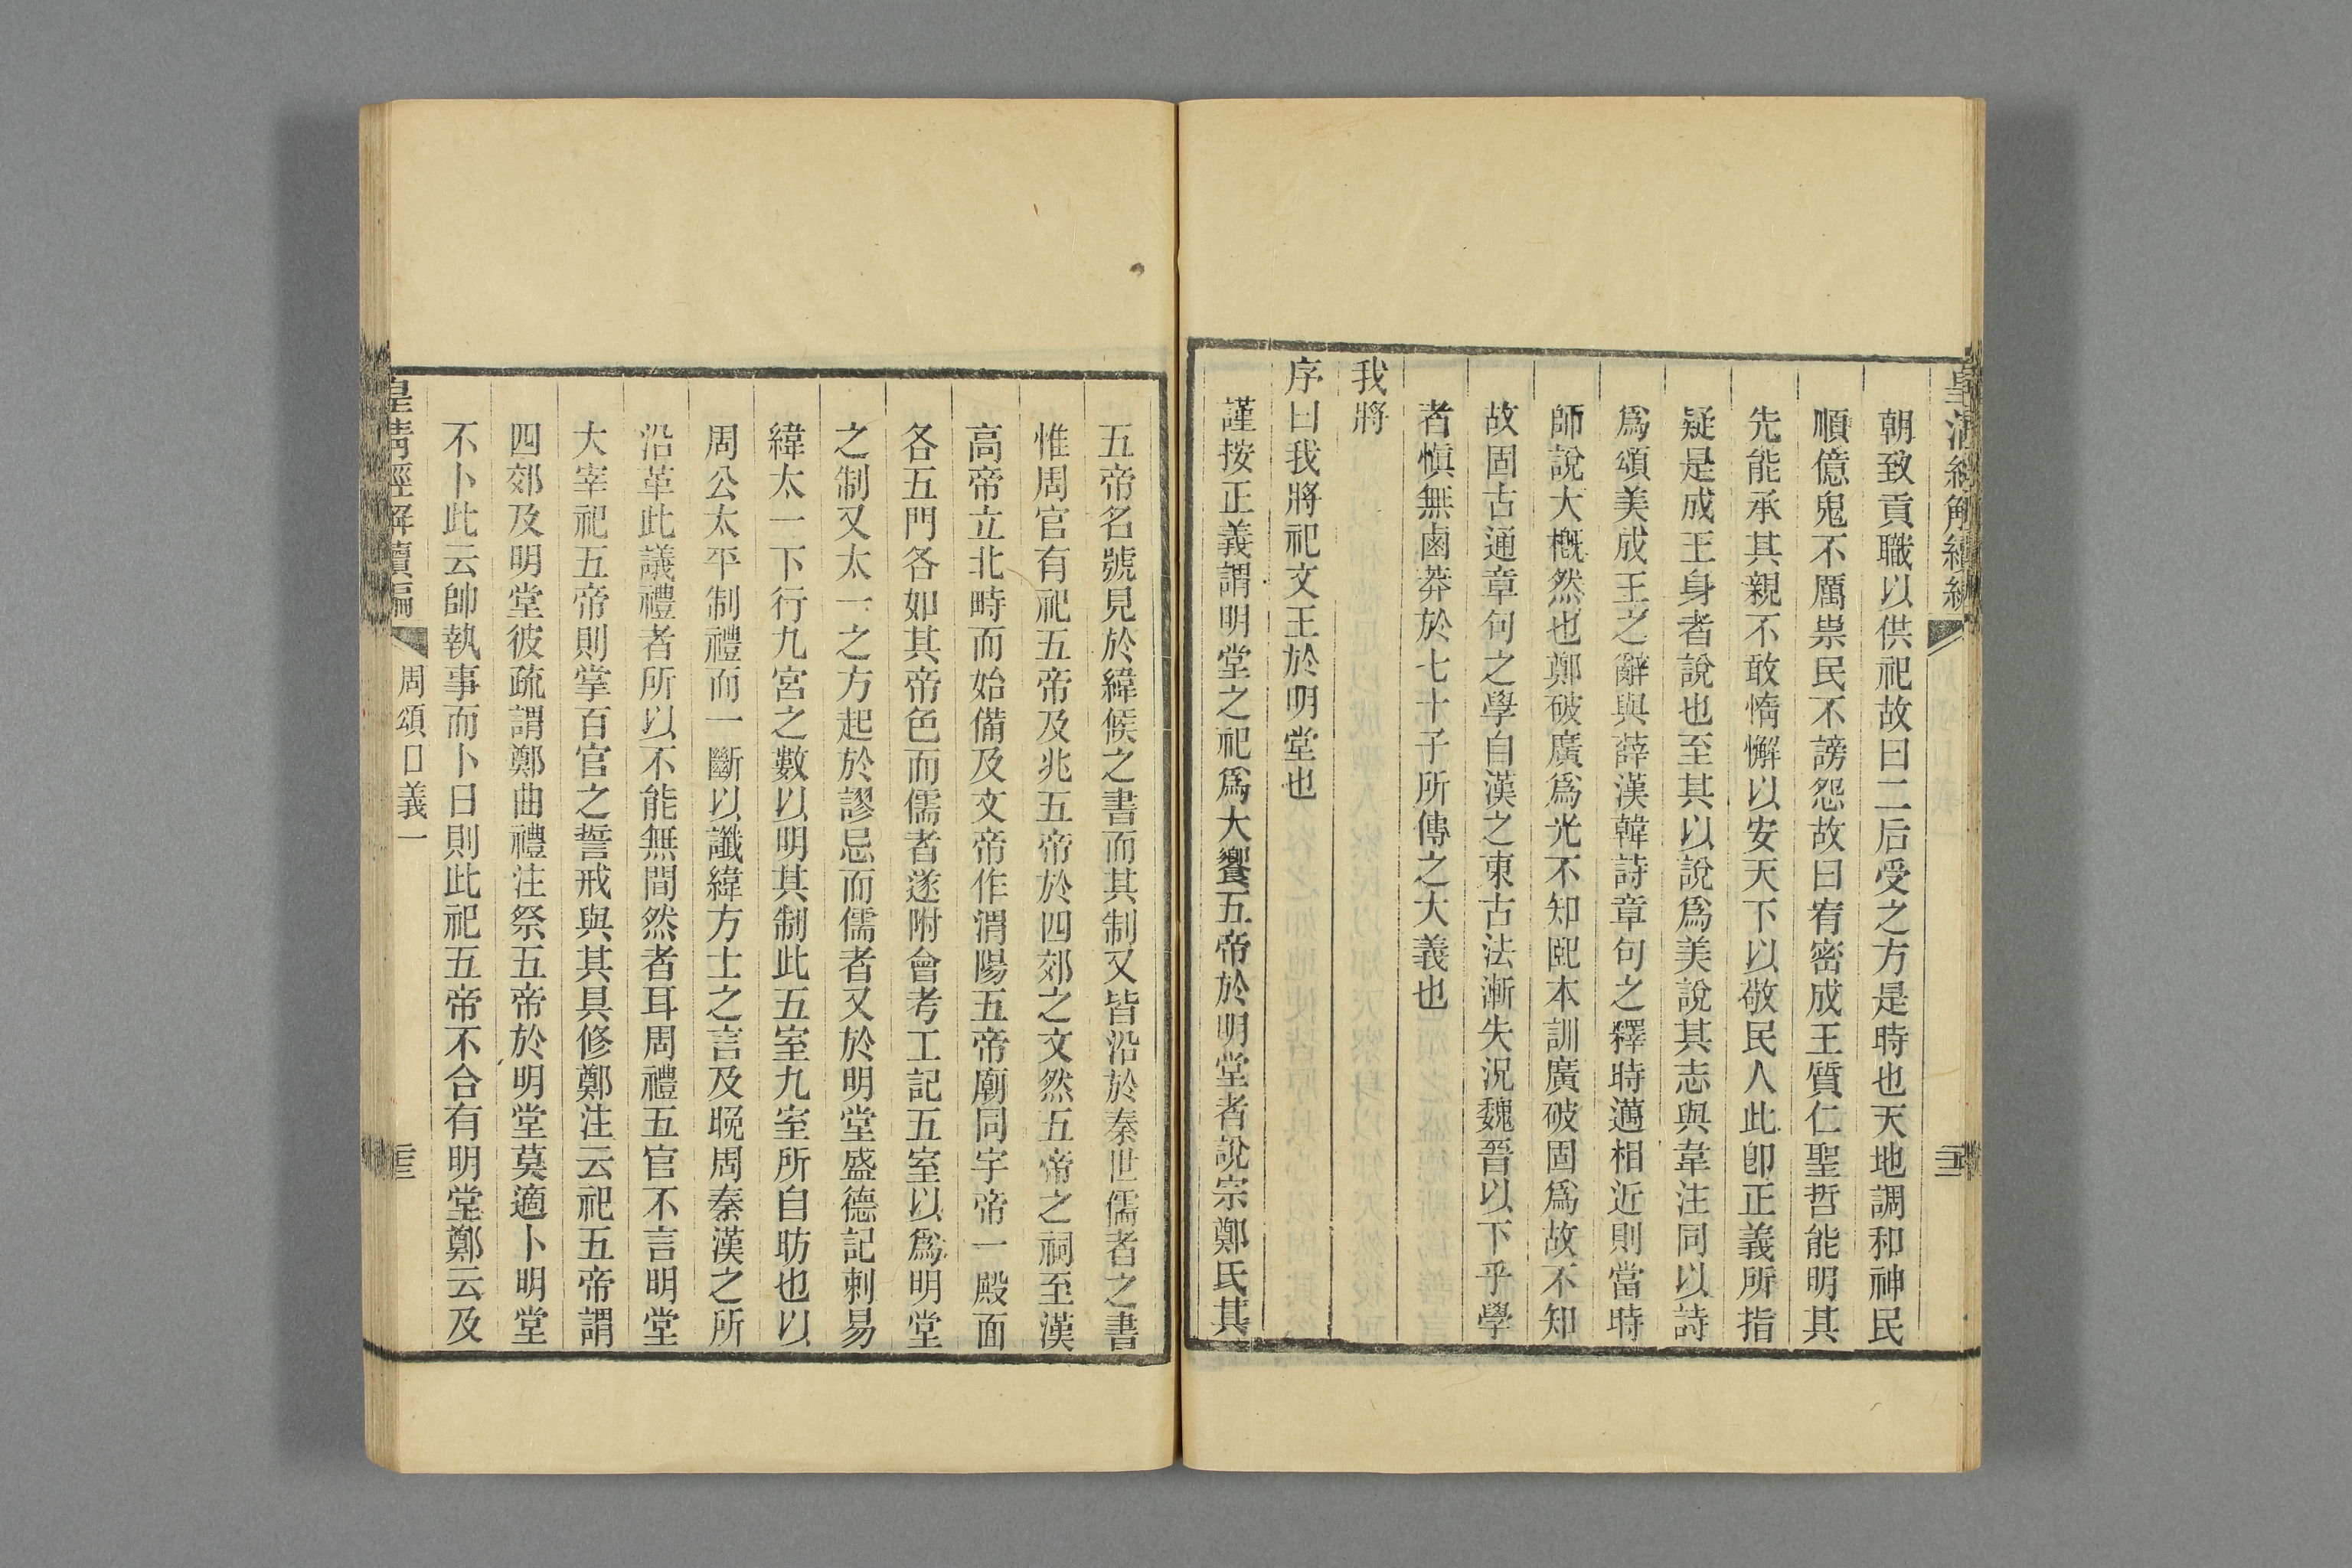 朝致貢職以供祀故曰二后受之方是時也天地調和神民
順億鬼不厲祟民不謗怨故曰宥密成王質仁聖哲能明其
先能承其親不敢惰懈以安天下以敬民人此卽正義所指
疑是成王身者說也至其以說爲美說其志與韋注同以詩
爲頌美成王之辭與薛漢韓詩章句之釋時邁相近則當時
師說大槪然也鄭破廣爲光不知熙本訓廣破固爲故不知
故固古通章句之學自漢之東古法漸失況魏晉以下乎學
者愼無鹵莽於七十子所傳之大義也
我將
序曰我將祀文王於明堂也
謹按正義謂明堂之祀爲大饗五帝於明堂者說宗鄭氏其
五帝名號見於緯候之書而其制又皆沿於秦世儒者之書
惟周官有祀五帝及兆五帝於四郊之文然五帝之祠至漢
高帝立北畤而始備及文帝作渭陽五帝廟同宇帝一殿面
各五門各如其帝色而儒者遂附會考工記五室以爲明堂
之制又太一之方起於謬忌而儒者又於明堂盛德記刺易
緯太一下行九宮之數以明其制此五室九室所自昉也以
周公太平制禮而一斷以讖緯方士之言及晚周秦漢之所
沿革此議禮者所以不能無間然者耳周禮五官不言明堂
大宰祀五帝則掌百官之誓戒與其具修鄭注云祀五帝謂
四郊及明堂彼疏謂鄭曲禮注祭五帝於明堂莫適卜明堂
不卜此云帥執事而卜日則此祀五帝不合有明堂鄭云及
皇清經解續編 周頌口義一